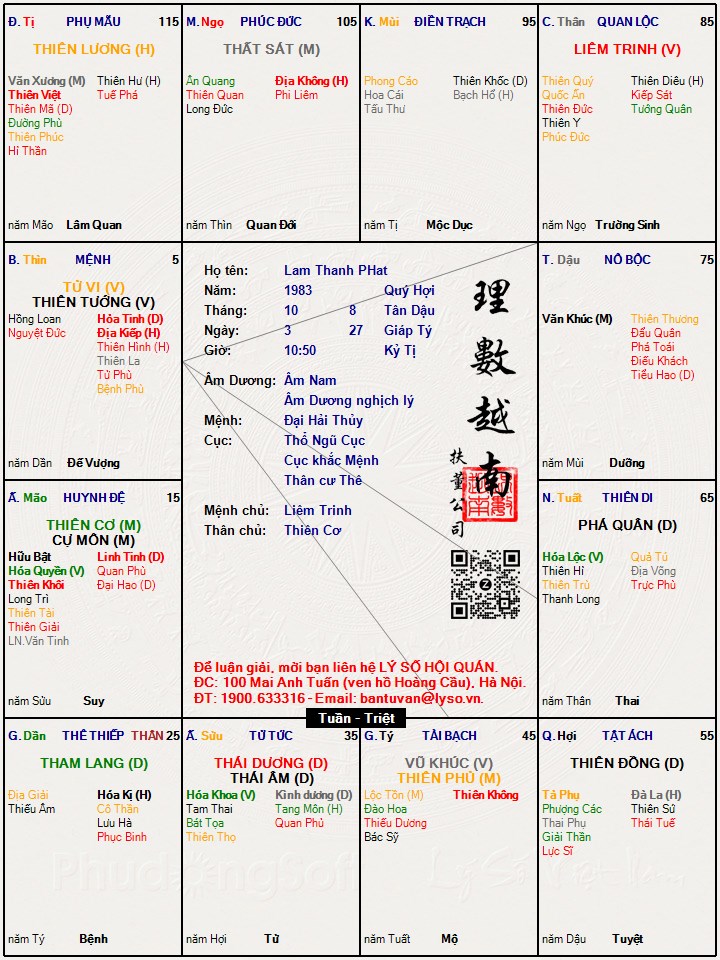 Đ. Tị PHỤ MẪU 115
THIÊN LƯƠNG (H)
Văn Xương (M) Thiên Hư (H)
Thiên Việt Tuế Phá
Thiên Mã (D)
Đường Phù
Thiên Phúc
Hỉ Thần
năm Mão Lâm Quan
M. Ngọ PHÚC ĐỨC 105
THẤT SÁT (M)
Ân Quang Địa Không (H)
Thiên Quan Phi Liêm
Long Đức
năm Thìn Quan Đới
K. Mùi ĐIỀN TRẠCH 95
Phong Cáo Thiên Khốc (D)
Hoa Cái Bạch Hổ (H)
Tấu Thư
năm Tị Mộc Dục
C. Thân QUAN LỘC 85
LIÊM TRINH (V)
Thiên Quý Thiên Diêu (H)
Quốc Ấn Kiếp Sát
Thiên Đức Tướng Quân
Thiên Y
Phúc Đức
năm Ngọ Trường Sinh
B. Thìn MỆNH 5
TỬ VI (V)
THIÊN TƯỚNG (V)
Hồng Loan Hỏa Tinh (D)
Nguyệt Đức Địa Kiếp (H)
Thiên Hình (H)
Thiên La
Tử Phù
Bệnh Phù
năm Dần Đế Vượng
Họ tên: Lam Thanh PHat
Năm: 1983 Quý Hợi
Tháng: 10 8 Tân Dậu
Ngày: 3 27 Giáp Tý
Giờ: 10:50 Kỷ Tị
Âm Dương: Âm Nam
Âm Dương nghịch lý
Mệnh: Đại Hải Thủy
Cục: Thổ Ngũ Cục
Cục khắc Mệnh
Thân cư Thê
Mệnh chủ: Liêm Trinh
Thân chủ: Thiên Cơ
理數越南
扶董公司
Z
Để luận giải, mời bạn liên hệ LÝ SỐ HỘI QUÁN.
ĐC: 100 Mai Anh Tuấn (ven hồ Hoàng Cầu), Hà Nội.
ĐT: 1900.633316 - Email: bantuvan@lyso.vn.
Tuần - Triệt
T. Dậu NÔ BỘC 75
Văn Khúc (M) Thiên Thương
Đẩu Quân
Phá Toái
Điếu Khách
Tiểu Hao (D)
năm Mùi Dưỡng
Ấ. Mão HUYNH ĐỆ 15
THIÊN CƠ (M)
CỰ MÔN (M)
Hữu Bật Linh Tinh (D)
Hóa Quyền (V) Quan Phù
Thiên Khôi Đại Hao (D)
Long Trì
Thiên Tài
Thiên Giải
LN.Văn Tinh
năm Sửu Suy
N. Tuất THIÊN DI 65
PHÁ QUÂN (D)
Hóa Lộc (V) Quả Tú
Thiên Hỉ Địa Võng
Thiên Trù Trực Phù
Thanh Long
năm Thân Thai
G. Dần THÊ THIẾP THÂN 25
THAM LANG (D)
Địa Giải Hóa Kị (H)
Thiếu Âm Cô Thần
Lưu Hà
Phục Binh
năm Tý Bệnh
Ấ. Sửu TỬ TỨC 35
THÁI DƯƠNG (D)
THÁI ÂM (D)
Hóa Khoa (V) Kình dương (D)
Tam Thai Tang Môn (H)
Bát Tọa Quan Phủ
Thiên Thọ
năm Hợi Tử
G. Tý TÀI BẠCH 45
VŨ KHÚC (V)
THIÊN PHỦ (M)
Lộc Tồn (M) Thiên Không
Đào Hoa
Thiếu Dương
Bác Sỹ
năm Tuất Mộ
Q. Hợi TẬT ÁCH 55
THIÊN ĐỒNG (D)
Tả Phụ Đà La (H)
Phượng Các Thiên Sứ
Thai Phụ Thái Tuế
Giải Thần
Lực Sĩ
năm Dậu Tuyệt
Phudongsoft
Lý Số Việt Nam